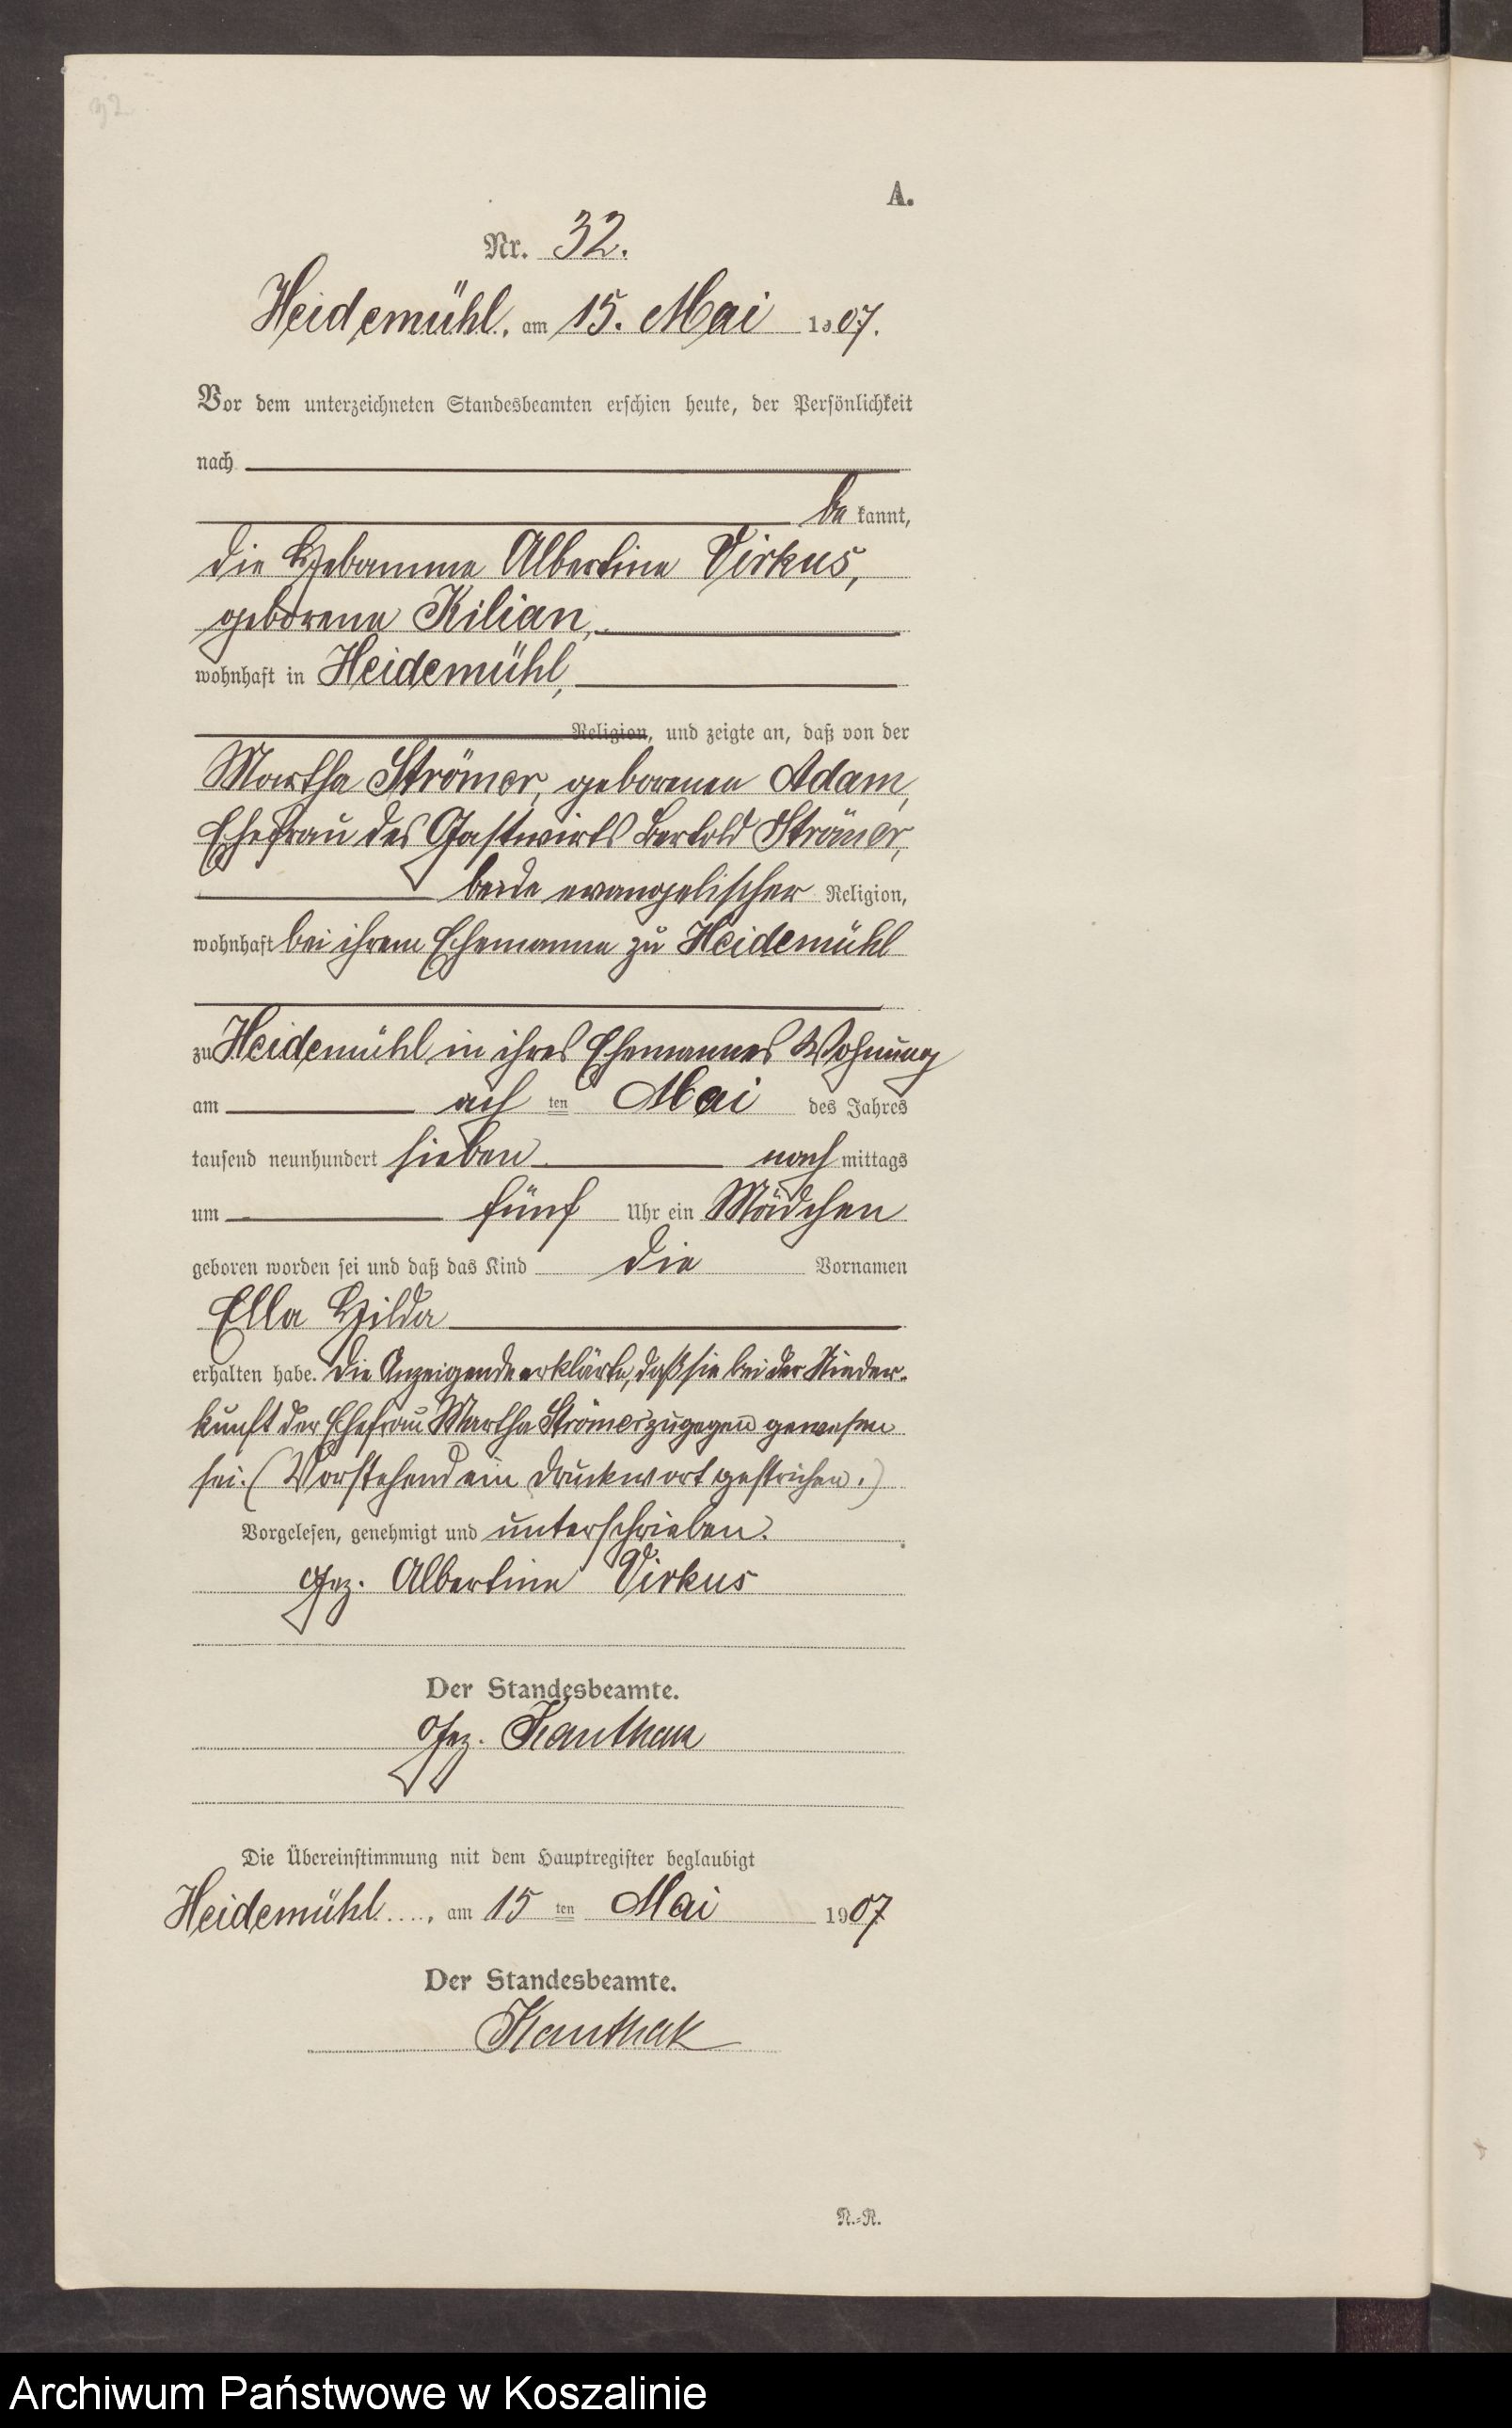 92
A.
Nr. 32.
Heidemühl, am 15. Mai 1907.
Vor dem unterzeichneten Standesbeamten erschien heute, der Persönlichkeit
nach
be kannt,
die Hebamme Albertine Virkus,
geborene Kilian,
wohnhaft in Heidemühl,
Religion, und zeigte an, daß von der
Martha Strömer, geborenen Adam,
Ehefrau des Gastwirts Bertold Strömer,
beide evangelischer Religion,
wohnhaft bei ihrem Ehemanne zu Heidemühl
zu Heidemühl in ihres Ehemannes Wohnung
am ach ten Mai des Jahres
tausend neunhundert sieben nach mittags
um fünf Uhr ein Mädchen
geboren worden sei und daß das Kind die Vornamen
Ella Hilda
erhalten habe. Die Anzeigende erklärte, daß sie bei der Nieder-
kunft der Ehefrau Martha Strömer zugegen gewesen
sei. (Vorstehend ein Druckwort gestrichen.)
Vorgelesen, genehmigt und unterschrieben.
Gez. Albertine Virkus
Der Standesbeamte.
Gez. Kanthak
Die Übereinstimmung mit dem Hauptregister beglaubigt
Heidemühl, am 15 ten Mai 1907
Der Standesbeamte.
Kanthak
N.-R.
Archiwum Państwowe w Koszalinie